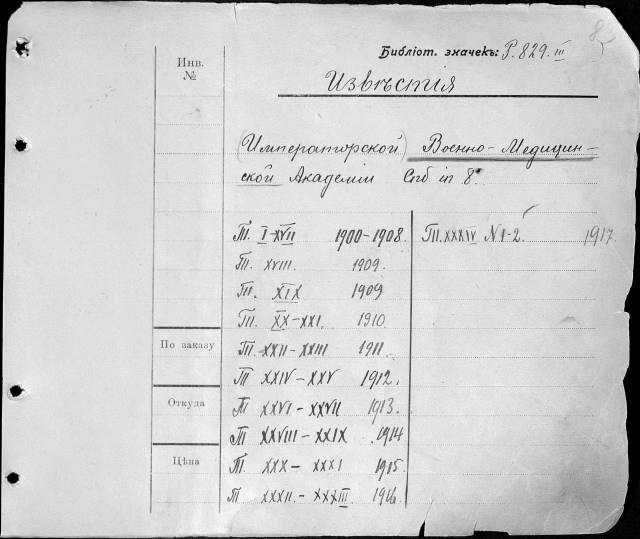 Библіот. значекъ: P. 829. III
Инв.
№
Извѣстія
(Императорской) Военно-Медицин-
ской Академіи Спб. in 8.
Т. I-XVII 1900-1908.
Т. XVIII. 1909.
Т. XIX 1909
Т. XX-XXI. 1910
Т. XXII-XXIII 1911.
Т XXIV-XXV 1912.
Т XXVI-XXVII 1913.
Т XXVIII-XXIX 1914
Т. XXX-XXXI 1915
Т XXXII.-XXXIII. 1916
Т. XXXIV N 1-2. 1917.
По заказу
Откуда
Цѣна